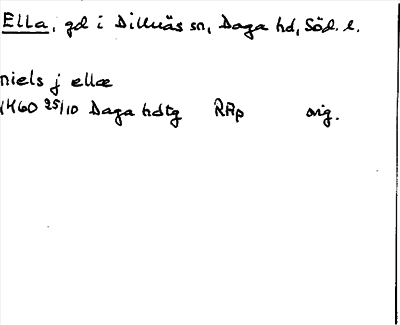 Ella, gd i Dillnäs sn, Daga hd, Söd. l.
niels j ellæ
1460 25/10 Daga hdtg RAp orig.